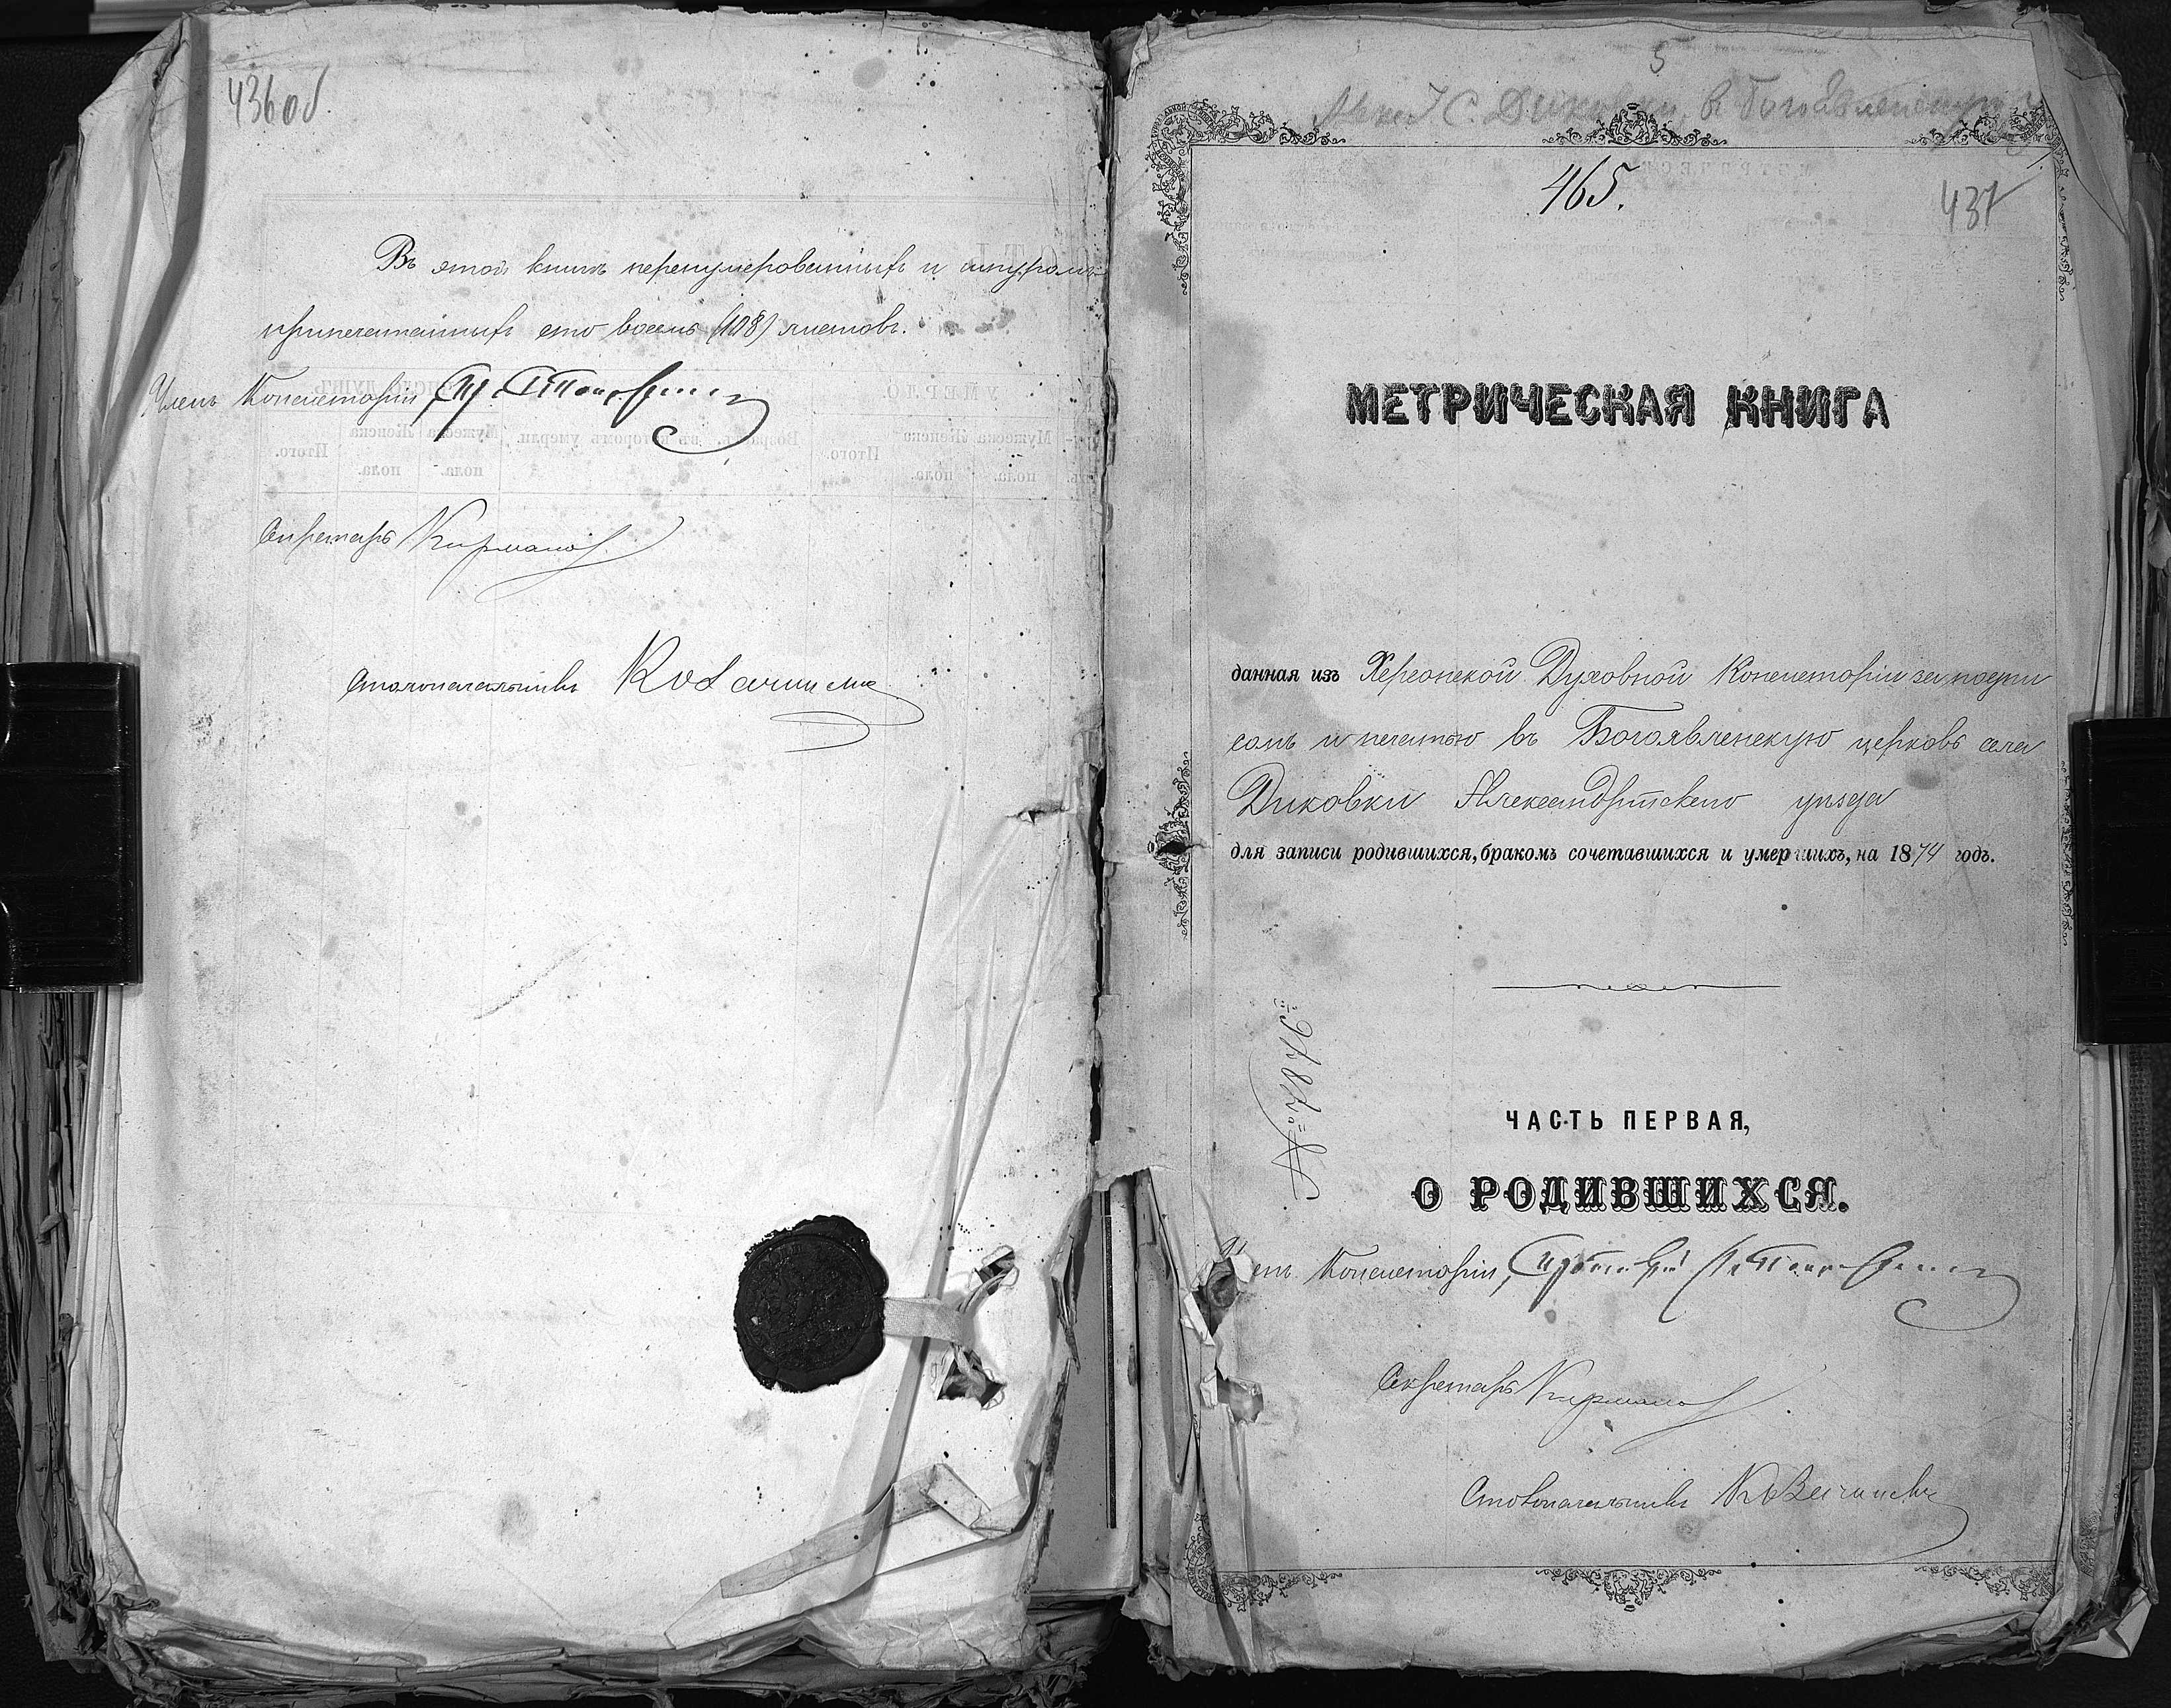 436об
Въ этой книгѣ перенумерованныхъ и шнуромъ
припечатанныхъ сто восемь (108) листовъ.
Членъ Консисторіи
Секретарь
Столоначальникъ
5
С. Диковки, в Богоявленскую
465.
437
МЕТРИЧЕСКАЯ КНИГА
данная изъ Херсонской Духовной Консисторіи за подпи
сомъ и печатью въ Богоявленскую церковь села
Диковки Александрійскаго уѣзда
для записи родившихся, бракомъ сочетавшихся и умершихъ, на 1874 годъ.
ЧАСТЬ ПЕРВАЯ,
О РОДИВШИХСЯ.
Консисторіи,
Секретарь
Столоначальникъ